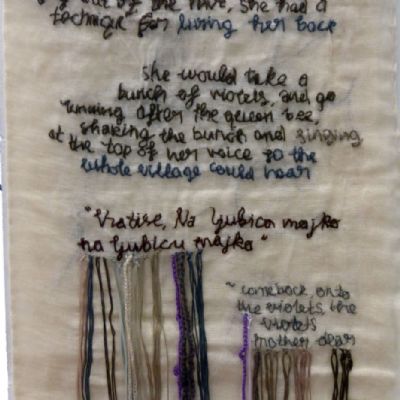 out of the hive, she had a
technique for luring her back
she would take a
bunch of violets, and go
running after the queen bee,
shaking the bunch and singing
at the top of her voice so the
whole village could hear
"Vratise, Na ljubica majko
na ljubicu majko"
~ comeback, onto
the violets, the
violets
mother dear